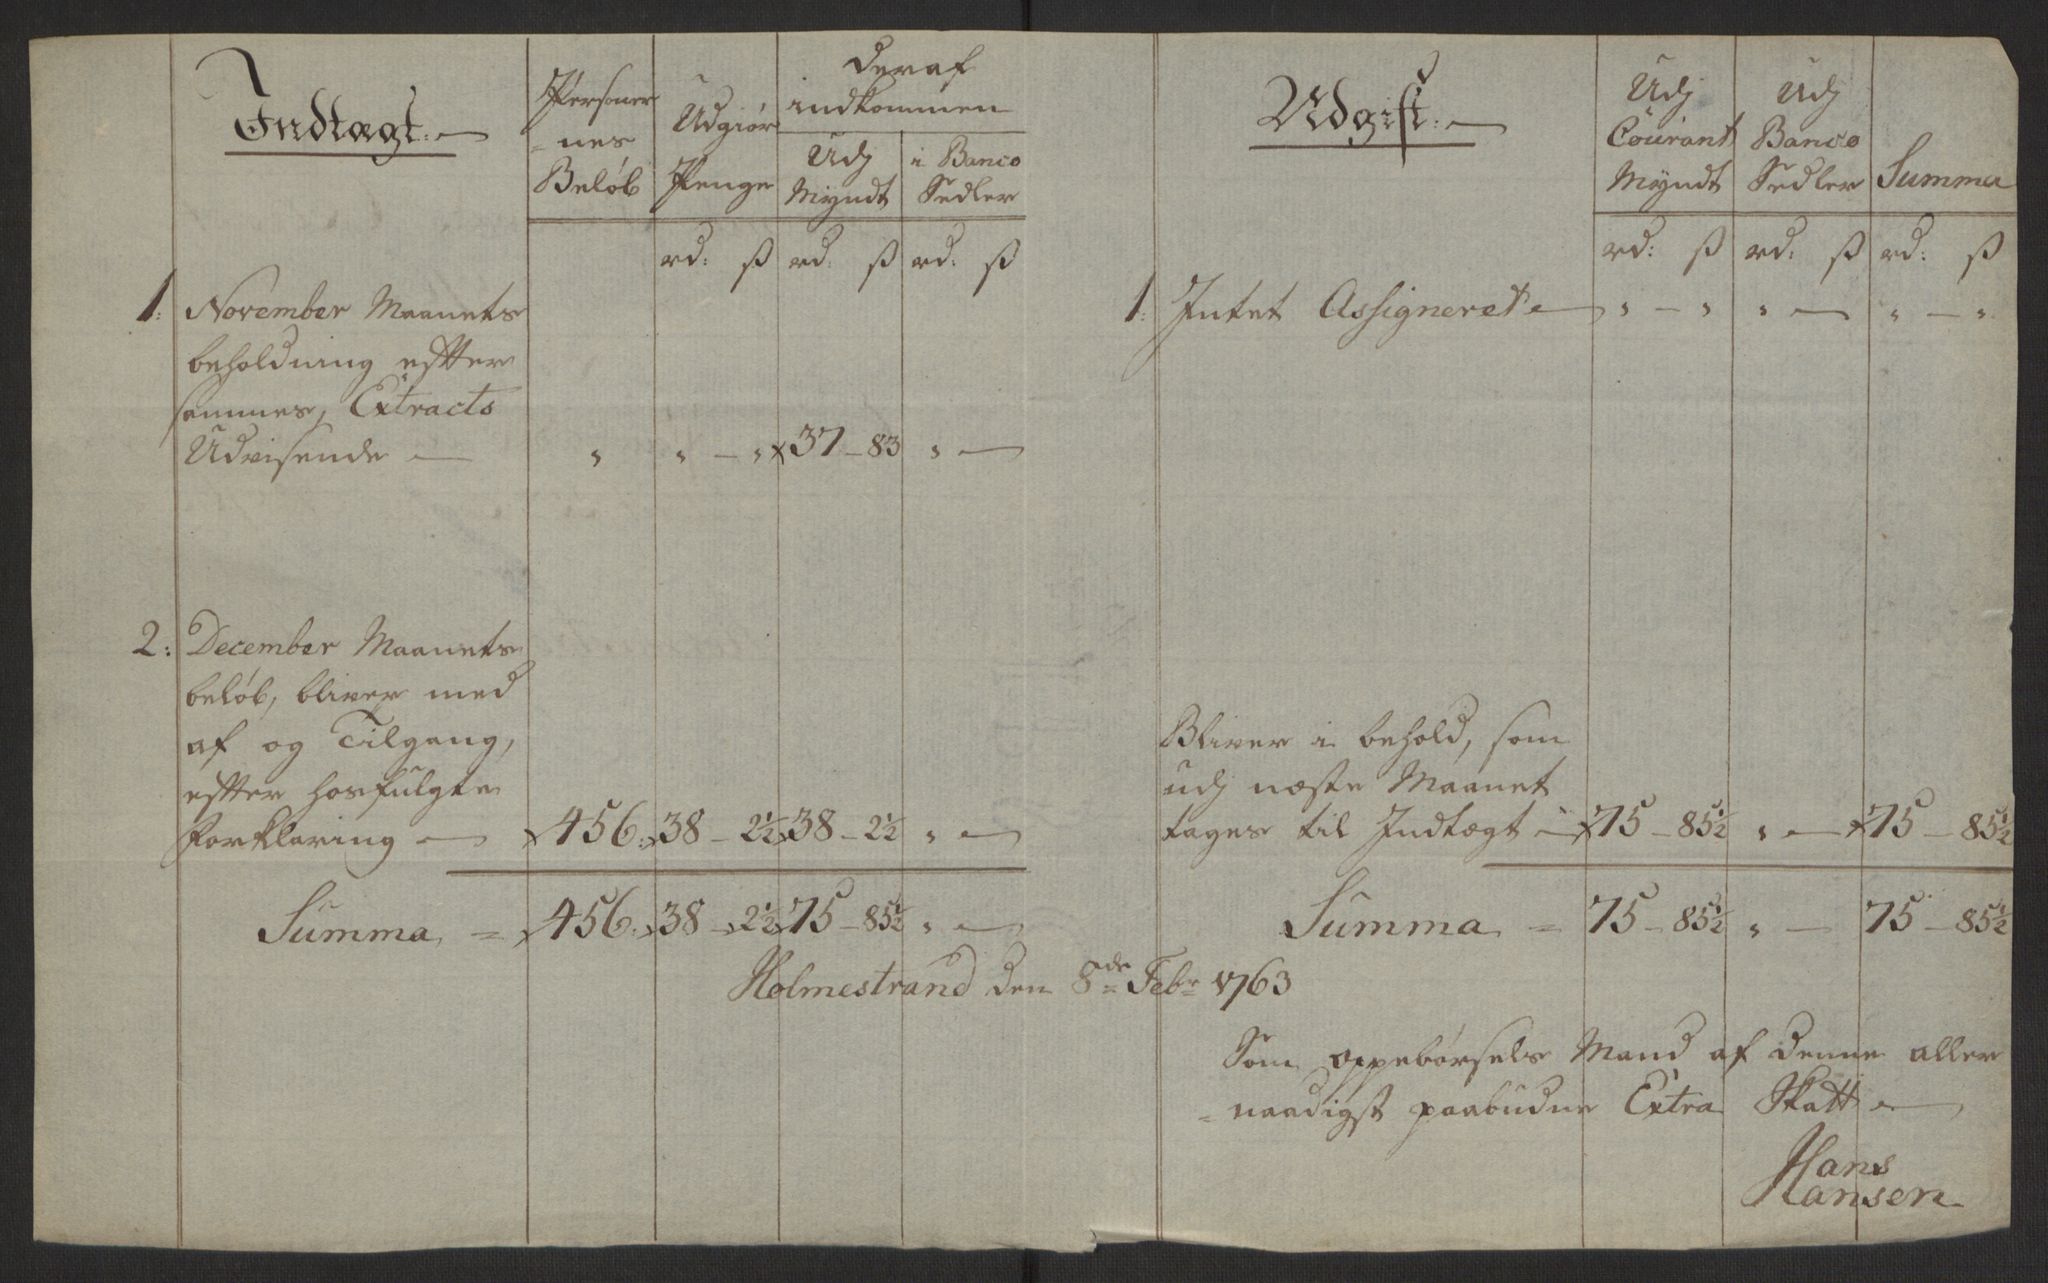 Indtægt:
Personer
=nes
Beløb
Udgiør
Penge
Deraf
indkommen
Udj
Myndt
i Banco
Sedler
rd: ß rd: ß rd: ß
1: November Maanets
beholdning effter
sammes, Extracts
Udvisende — " " — " 37 – 83 " —
2: December Maanets
beløb, bliver med
af og Tilgang,
effter hosfulgte
Forklaring — 456. 38 – 2½ 38 – 2½ " —
Summa = 456. 38 – 2½ 75 – 85½ " —
Udgift:
Udj
Courant
Myndt
Udj
Banco
Sedler
Summa
rd: ß rd: ß rd: ß
1: Intet Assigneret — " — " " — " — "
Bliver i behold, som
udj næste Maanet
tages til Indtægt — 75 – 85½ " — 75 – 85½
Summa = 75 – 85½ " — 75 – 85½
Holmestrand den 8de Febr 1763
Som oppebørsels Mand af denne aller
=naadigst paabudne Extra Skatt
Hans
Hansen